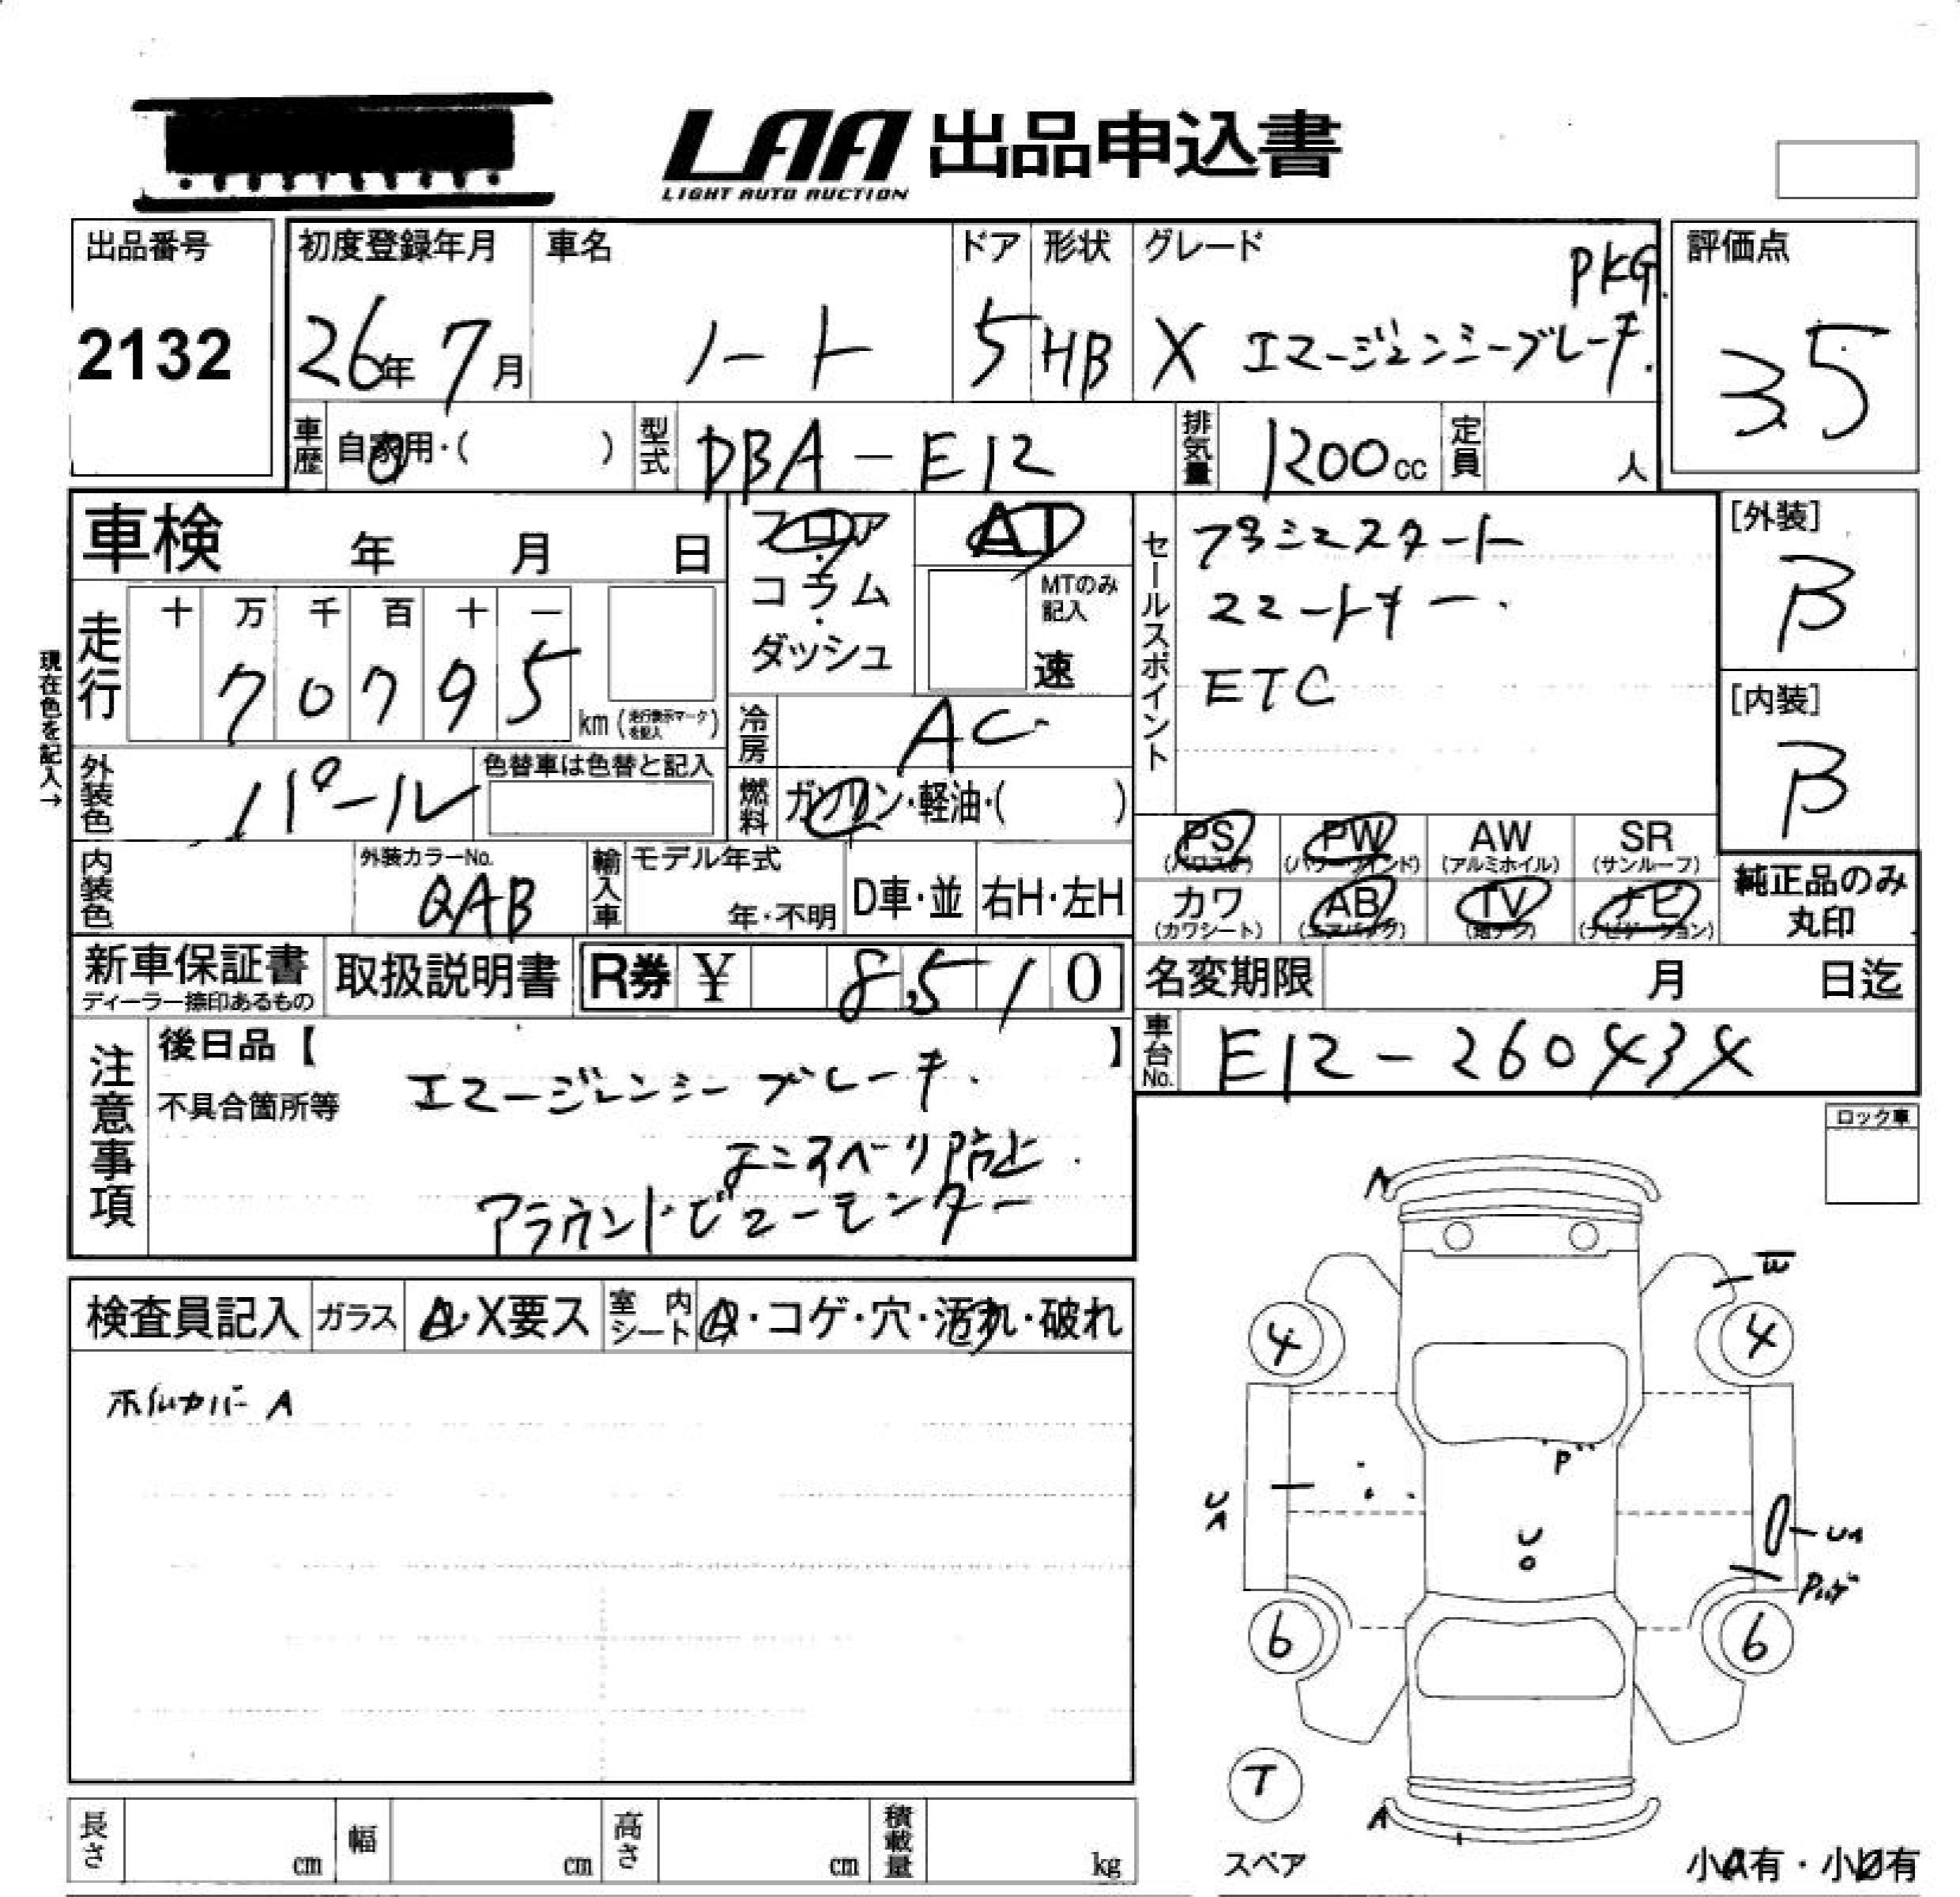 LAA 出品申込書
LIGHT AUTO AUCTION
出品番号
2132
初度登録年月
26年 7月
車名
ノート
ドア
5
形状
HB
グレード
PKG.
X エマージェンシーブレーキ.
評価点
3.5
車歴
自家用・( )
型式
DBA-E12
排気量
1200cc
定員
人
車検 年 月 日
フロア
・
コラム
・
ダッシュ
AT
MTのみ
記入
速
セールスポイント
プッシュスタート
スマートキー.
ETC
[外装]
B
[内装]
B
現在色を記入→
走行
十 万 千 百 十 一
7 0 7 9 5
km (走行表示マークを記入)
冷房
AC
外装色
パール
色替車は色替と記入
燃料
ガソリン・軽油・( )
PS
(パワステ)
PW
(パワーウインド)
AW
(アルミホイル)
SR
(サンルーフ)
内装色
外装カラーNo.
QAB
輸入車
モデル年式
年・不明
D車・並
右H・左H
カワ
(カワシート)
AB
(エアバッグ)
TV
(地デジ)
ナビ
(ナビゲーション)
純正品のみ
丸印
新車保証書
ディーラー捺印あるもの
取扱説明書
R券 ¥ 8,510
名変期限 月 日迄
車台No.
E12-260434
注意事項
後日品【 】
不具合箇所等
エマージェンシーブレーキ.
よこすべり防止.
アラウンドビューモニター
ロック車
検査員記入
ガラス
A・X要ス
室内シート
A・コゲ・穴・汚れ・破れ
ホイルカバー A
A
E
4
4
P
UA
U
UA
6
6
T
スペア
A
小A有・小U有
長さ cm
幅 cm
高さ cm
積載量 kg